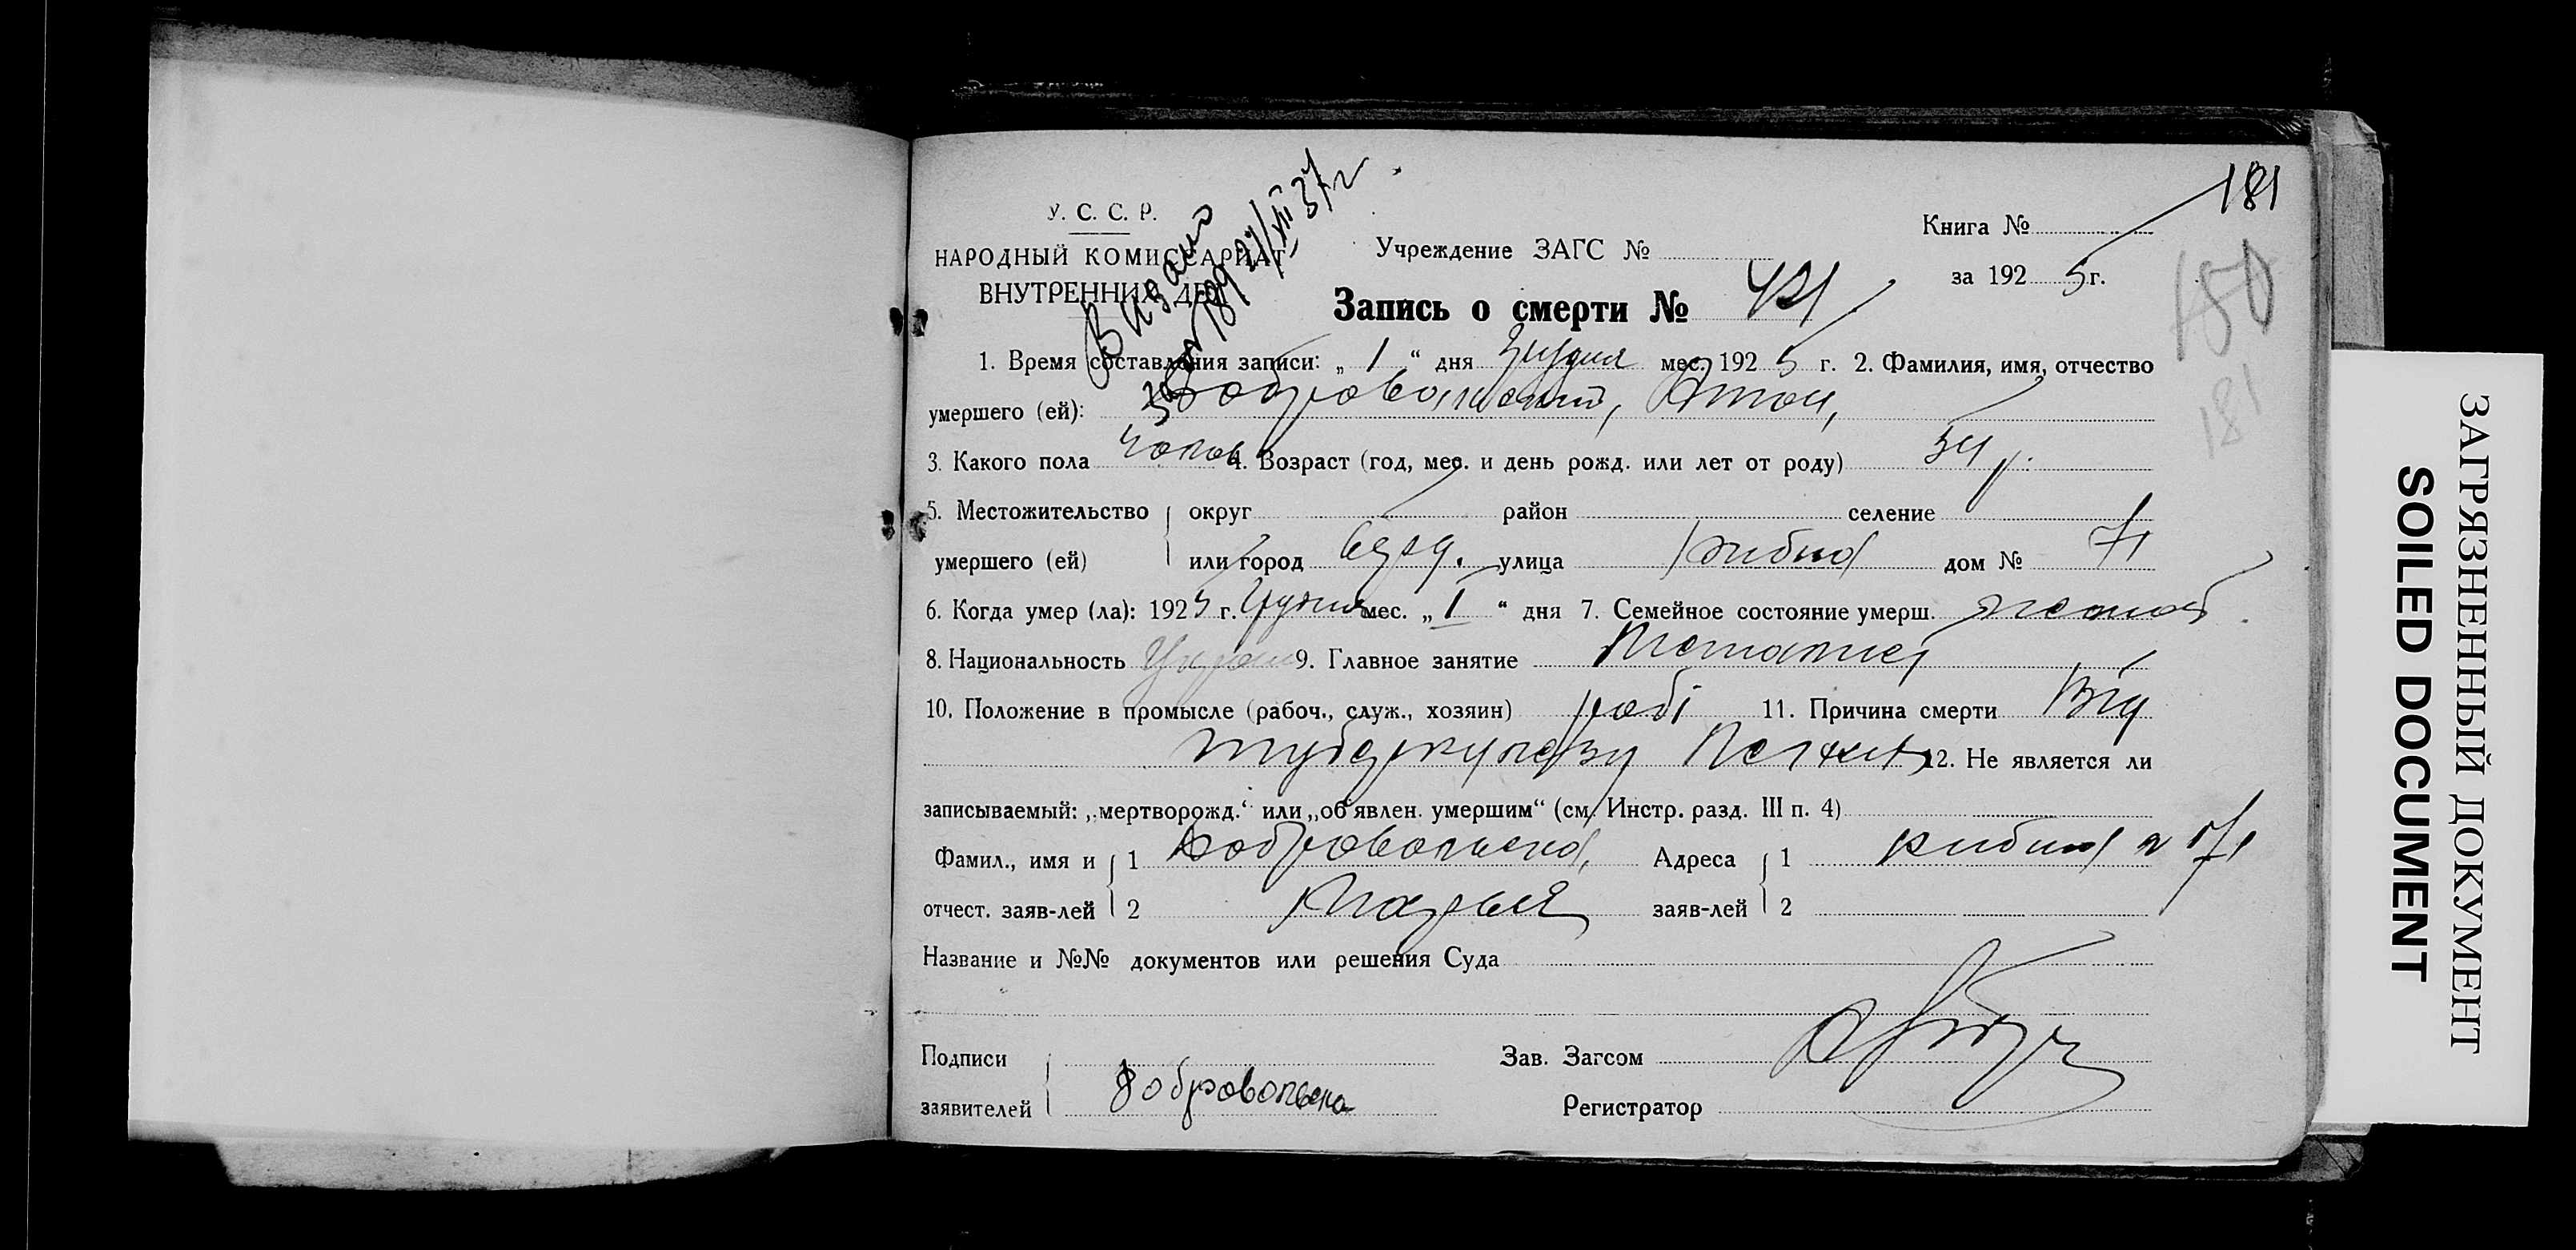 181
У. С. С. Р.
НАРОДНЫЙ КОМИССАРИАТ
ВНУТРЕННИХ ДЕЛ
Видано
Учреждение ЗАГС №
Книга №
за 1925 г.
150
181
Запись о смерти №
1. Время составления записи: „1“ дня грудня мес. 1925 г. 2. Фамилия, имя, отчество
умершего (ей): Добровольский, Антон,
3. Какого пола чолов 4. Возраст (год, мес. и день рожд. или лет от роду) 34 р.
5. Местожительство округ район селение
умершего (ей) или город улица Рибна дом № 71
6. Когда умер (ла): 1925 г. Грудня мес. „1“ дня 7. Семейное состояние умерш.
8. Национальность Украин 9. Главное занятие
10. Положение в промысле (рабоч., служ., хозяин) робі 11. Причина смерти Від
туберкулезу легких 12. Не является ли
записываемый: „мертворожд.“ или „об'явлен. умершим“ (см. Инстр. разд. III п. 4)
Фамил., имя и 1 Добровольска, Адреса 1 Рибна 71
отчест. заяв-лей 2 Марья заяв-лей 2
Название и №№ документов или решения Суда
Подписи Зав. Загсом
заявителей Добровольска Регистратор
ЗАГРЯЗНЕННЫЙ ДОКУМЕНТ
SOILED DOCUMENT